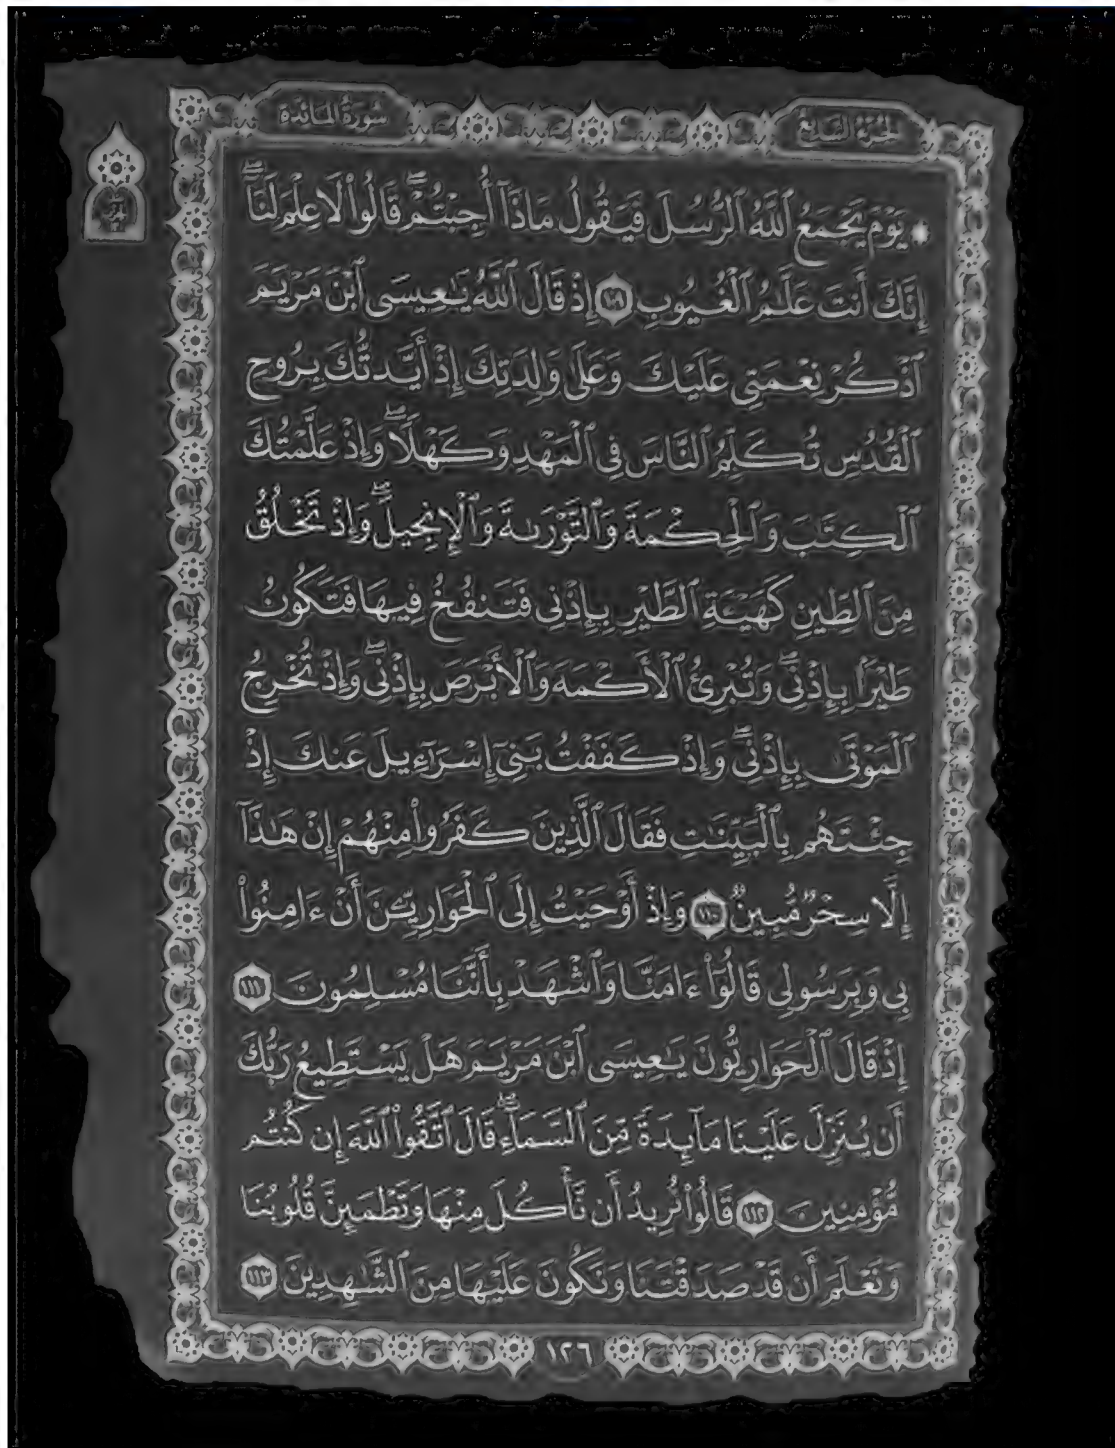 الجزء السابع
سورة المائدة
۞ يَوْمَ يَجْمَعُ ٱللَّهُ ٱلرُّسُلَ فَيَقُولُ مَاذَآ أُجِبْتُمْۖ قَالُوا۟ لَا عِلْمَ لَنَآۖ
إِنَّكَ أَنتَ عَلَّٰمُ ٱلْغُيُوبِ ١٠٩ إِذْ قَالَ ٱللَّهُ يَٰعِيسَى ٱبْنَ مَرْيَمَ
ٱذْكُرْ نِعْمَتِى عَلَيْكَ وَعَلَىٰ وَٰلِدَتِكَ إِذْ أَيَّدتُّكَ بِرُوحِ
ٱلْقُدُسِ تُكَلِّمُ ٱلنَّاسَ فِى ٱلْمَهْدِ وَكَهْلًاۖ وَإِذْ عَلَّمْتُكَ
ٱلْكِتَٰبَ وَٱلْحِكْمَةَ وَٱلتَّوْرَىٰةَ وَٱلْإِنجِيلَۖ وَإِذْ تَخْلُقُ
مِنَ ٱلطِّينِ كَهَيْـَٔةِ ٱلطَّيْرِ بِإِذْنِى فَتَنفُخُ فِيهَا فَتَكُونُ
طَيْرًۢا بِإِذْنِىۖ وَتُبْرِئُ ٱلْأَكْمَهَ وَٱلْأَبْرَصَ بِإِذْنِىۖ وَإِذْ تُخْرِجُ
ٱلْمَوْتَىٰ بِإِذْنِىۖ وَإِذْ كَفَفْتُ بَنِىٓ إِسْرَٰٓءِيلَ عَنكَ إِذْ
جِئْتَهُم بِٱلْبَيِّنَٰتِ فَقَالَ ٱلَّذِينَ كَفَرُوا۟ مِنْهُمْ إِنْ هَٰذَآ
إِلَّا سِحْرٌ مُّبِينٌ ١١٠ وَإِذْ أَوْحَيْتُ إِلَى ٱلْحَوَارِيِّـۧنَ أَنْ ءَامِنُوا۟
بِى وَبِرَسُولِى قَالُوٓا۟ ءَامَنَّا وَٱشْهَدْ بِأَنَّنَا مُسْلِمُونَ ١١١
إِذْ قَالَ ٱلْحَوَارِيُّونَ يَٰعِيسَى ٱبْنَ مَرْيَمَ هَلْ يَسْتَطِيعُ رَبُّكَ
أَن يُنَزِّلَ عَلَيْنَا مَآئِدَةً مِّنَ ٱلسَّمَآءِۖ قَالَ ٱتَّقُوا۟ ٱللَّهَ إِن كُنتُم
مُّؤْمِنِينَ ١١٢ قَالُوا۟ نُرِيدُ أَن نَّأْكُلَ مِنْهَا وَتَطْمَئِنَّ قُلُوبُنَا
وَنَعْلَمَ أَن قَدْ صَدَقْتَنَا وَنَكُونَ عَلَيْهَا مِنَ ٱلشَّٰهِدِينَ ١١٣
١٢٦